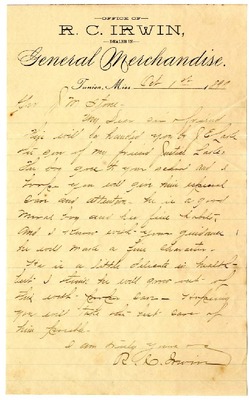 OFFICE OF
R. C. IRWIN,
DEALER IN
General Merchandise.
Tunica, Miss Oct 1st
Gov J M Stone
My Dear Sir & friend
This will be handed you by
the son of my friend
This boy goes to your school and I
hope you will give him especial
care and attention. He is a good
moral boy and has fine habits.
And I know with your guidance
he will make a fine character.
He is a little delicate in health
but I think he will grow out of
this with care - hoping
you will take the best care of
him possible.
I am truly yours
R. C. Irwin